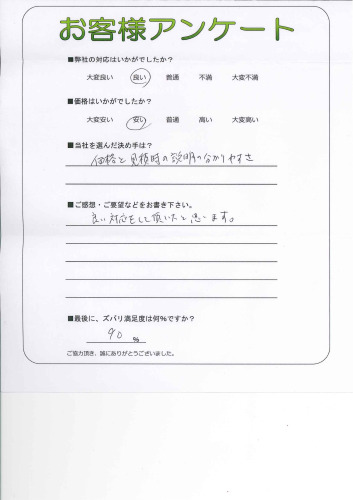 お客様アンケート
■弊社の対応はいかがでしたか?
大変良い 良い 普通 不満 大変不満
■価格はいかがでしたか?
大変安い 安い 普通 高い 大変高い
■当社を選んだ決め手は?
価格と見積時の説明の分かりやすさ
■ご感想・ご要望などをお書き下さい。
良い対応をして頂いたと思います。
■最後に、ズバリ満足度は何%ですか?
90 %
ご協力頂き、誠にありがとうございました。